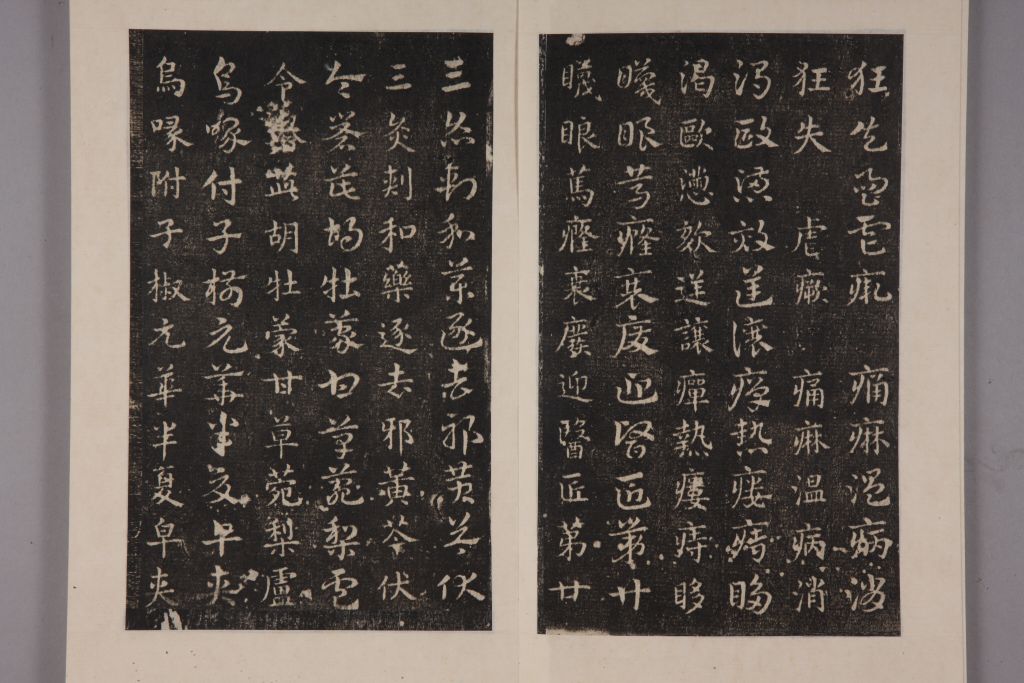 狂失虐瘚痛痳溫病消
狂失 虐瘚 痛痳溫病消
渴歐懣欬逆讓癉熱瘻痔眵
渴歐懣欬逆讓癉熱瘻痔眵
䁾眼篤癃衰廢迎醫匠第廿
䁾眼篤癃衰廢迎醫匠第廿
三灸刺和藥逐去邪黃芩伏
三灸刺和藥逐去邪黃芩伏
令茈胡牡蒙甘草菀梨蘆
令茈胡牡蒙甘草菀梨盧
烏喙付子椒元華半夏皁夾
烏喙附子椒元華半夏皁夾